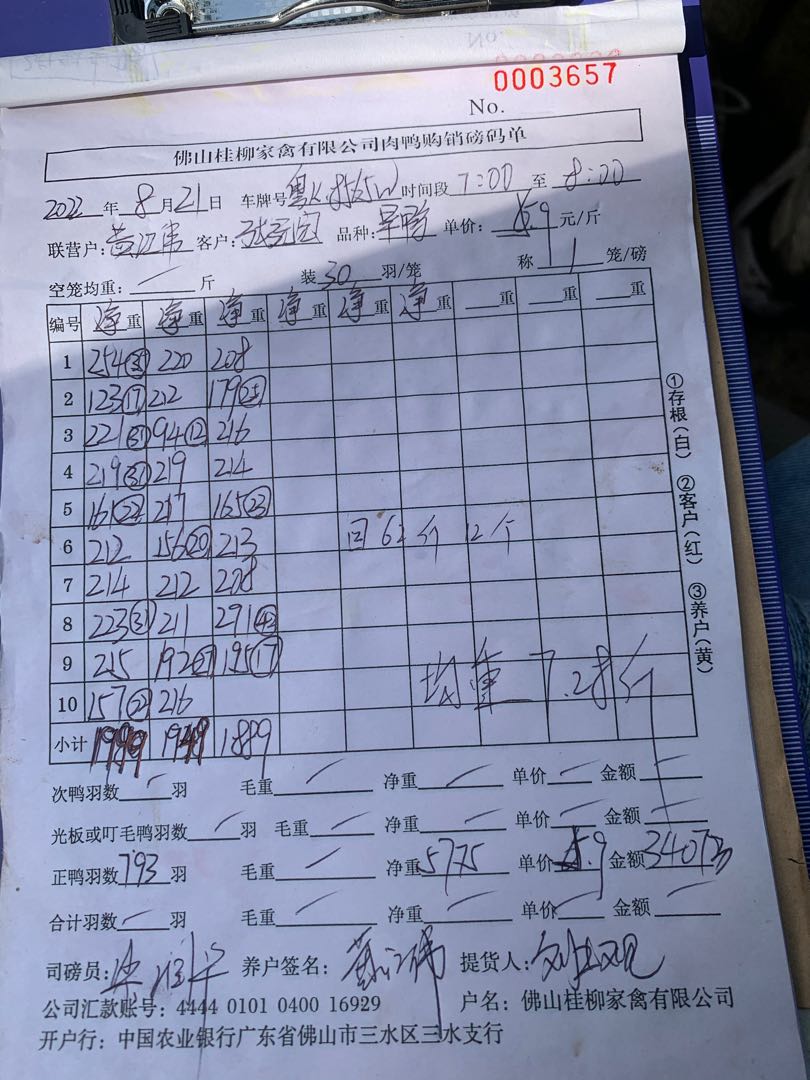 0003657
No.
佛山桂柳家禽有限公司肉鸭购销磅码单
2022 年 8 月 21 日 车牌号 粤 时间段 7:00 至 8:00
联营户: 黄江伟 客户: 品种: 旱鸭 单价: 5.9 元/斤
空笼均重: 斤 装 30 羽/笼 称 1 笼/磅
编号 净重 净重 净重 净重 净重 净重 重 重 重
1 254 220 208
2 123⑰ 212 179
3 221㉛ 94⑫ 216
4 219㉛ 219 214
5 161 217 165㉓
6 212 156⑳ 213 回62斤 12个
7 214 212 208
8 223㉛ 211 291㊷
9 215 192 195⑰ 均重7.28斤
10 157 216
小计 1949 1889
①存根(白) ②客户(红) ③养户(黄)
次鸭羽数 羽 毛重 净重 单价 金额
光板或叮毛鸭羽数 羽 毛重 净重 单价 金额
正鸭羽数 793 羽 毛重 净重 5775 单价 5.9 金额 34073
合计羽数 羽 毛重 净重 单价 金额
司磅员: 养户签名: 黄江伟 提货人:
公司汇款账号: 4444 0101 0400 16929 户名: 佛山桂柳家禽有限公司
开户行: 中国农业银行广东省佛山市三水区三水支行